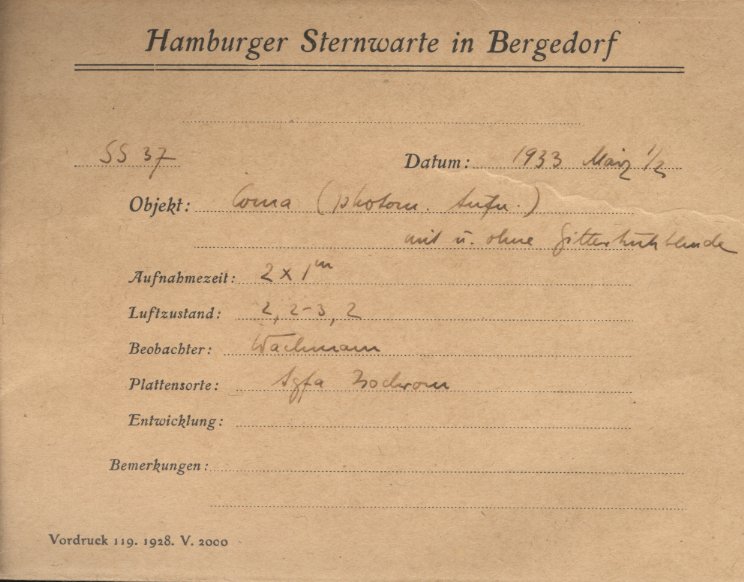 Hamburger Sternwarte in Bergedorf
SS 37 Datum: 1933 März 1/2
Objekt: Coma (photom. Aufn.)
mit u. ohne
Aufnahmezeit: 2 x 1m
Luftzustand: 2, 2-3, 2
Beobachter: Wachmann
Plattensorte: Agfa Isochrom
Entwicklung:
Bemerkungen:
Vordruck 119. 1928. V. 2000